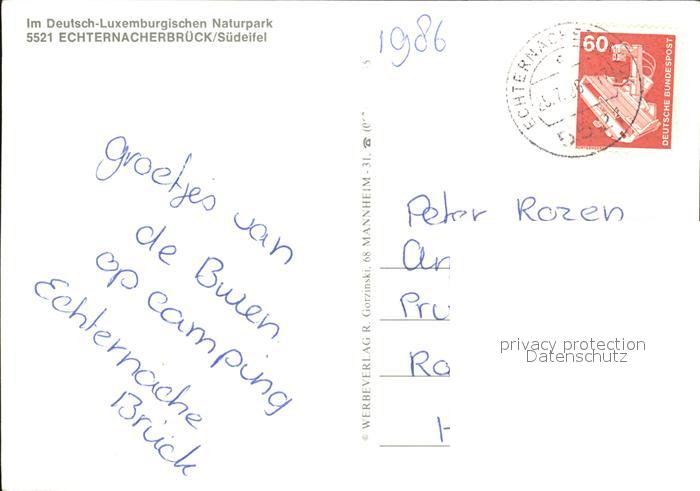 Im Deutsch-Luxemburgischen Naturpark
5521 ECHTERNACHERBRÜCK/Südeifel
1986
60
DEUTSCHE BUNDESPOST
Groetjes van
de Buren
op camping
Echternache
Brück
© WERBEVERLAG R. Gorzinski, 68 MANNHEIM - 31, ☎
Peter Rozen
An
Pru
Ro
H
privacy protection
Datenschutz